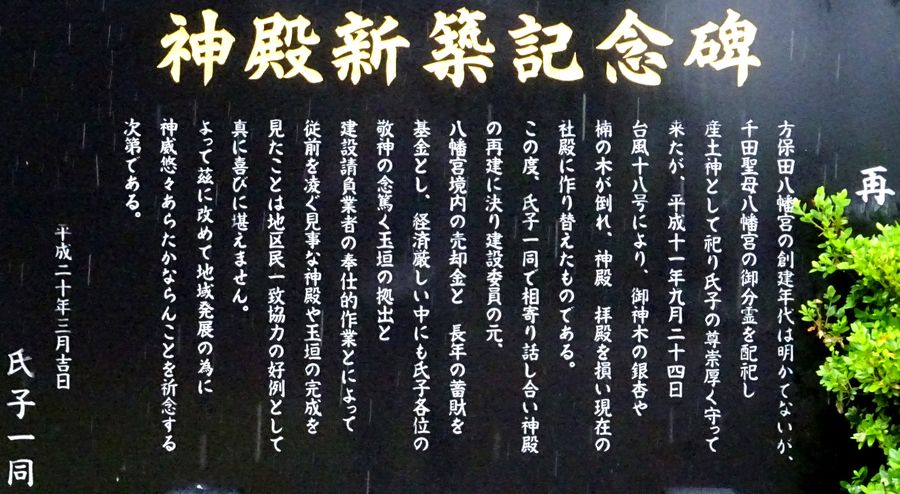 神殿新築記念碑
再
方保田八幡宮の創建年代は明かてないが、
千田聖母八幡宮の御分霊を配祀し
産土神として祀り氏子の尊崇厚く守って
来たが、平成十一年九月二十四日
台風十八号により、御神木の銀杏や
楠の木が倒れ、神殿　拝殿を損い現在の
社殿に作り替えたものである。
この度、氏子一同で相寄り話し合い神殿
の再建に決り建設委員の元、
八幡宮境内の売却金と　長年の蓄財を
基金とし、経済厳しい中にも氏子各位の
敬神の念篤く玉垣の拠出と
建設請負業者の奉仕的作業とによって
従前を凌ぐ見事な神殿や玉垣の完成を
見たことは地区民一致協力の好例として
真に喜びに堪えません。
よって茲に改めて地域発展の為に
神威悠々あらたかならんことを祈念する
次第である。
平成二十年三月吉日
氏子一同